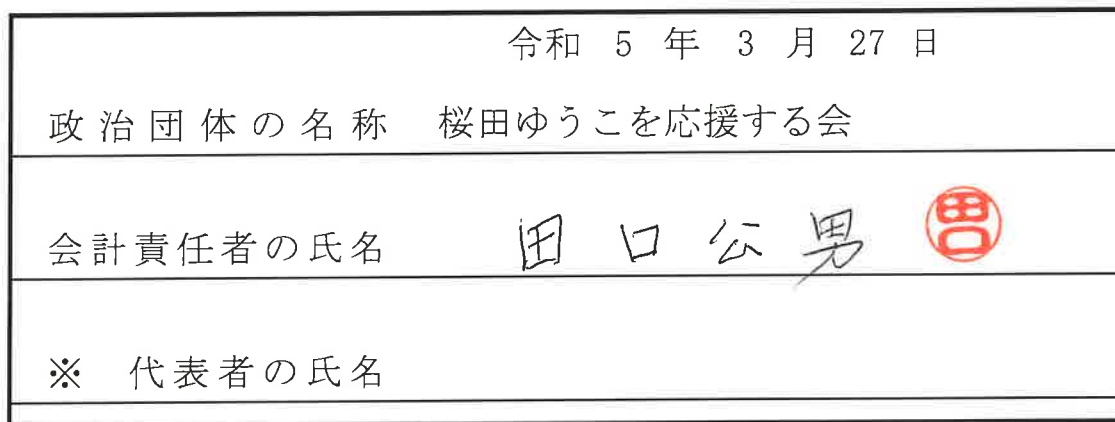 令和 5 年 3 月 27 日
政治団体の名称 桜田ゆうこを応援する会
会計責任者の氏名 田口公男 田口
※ 代表者の氏名